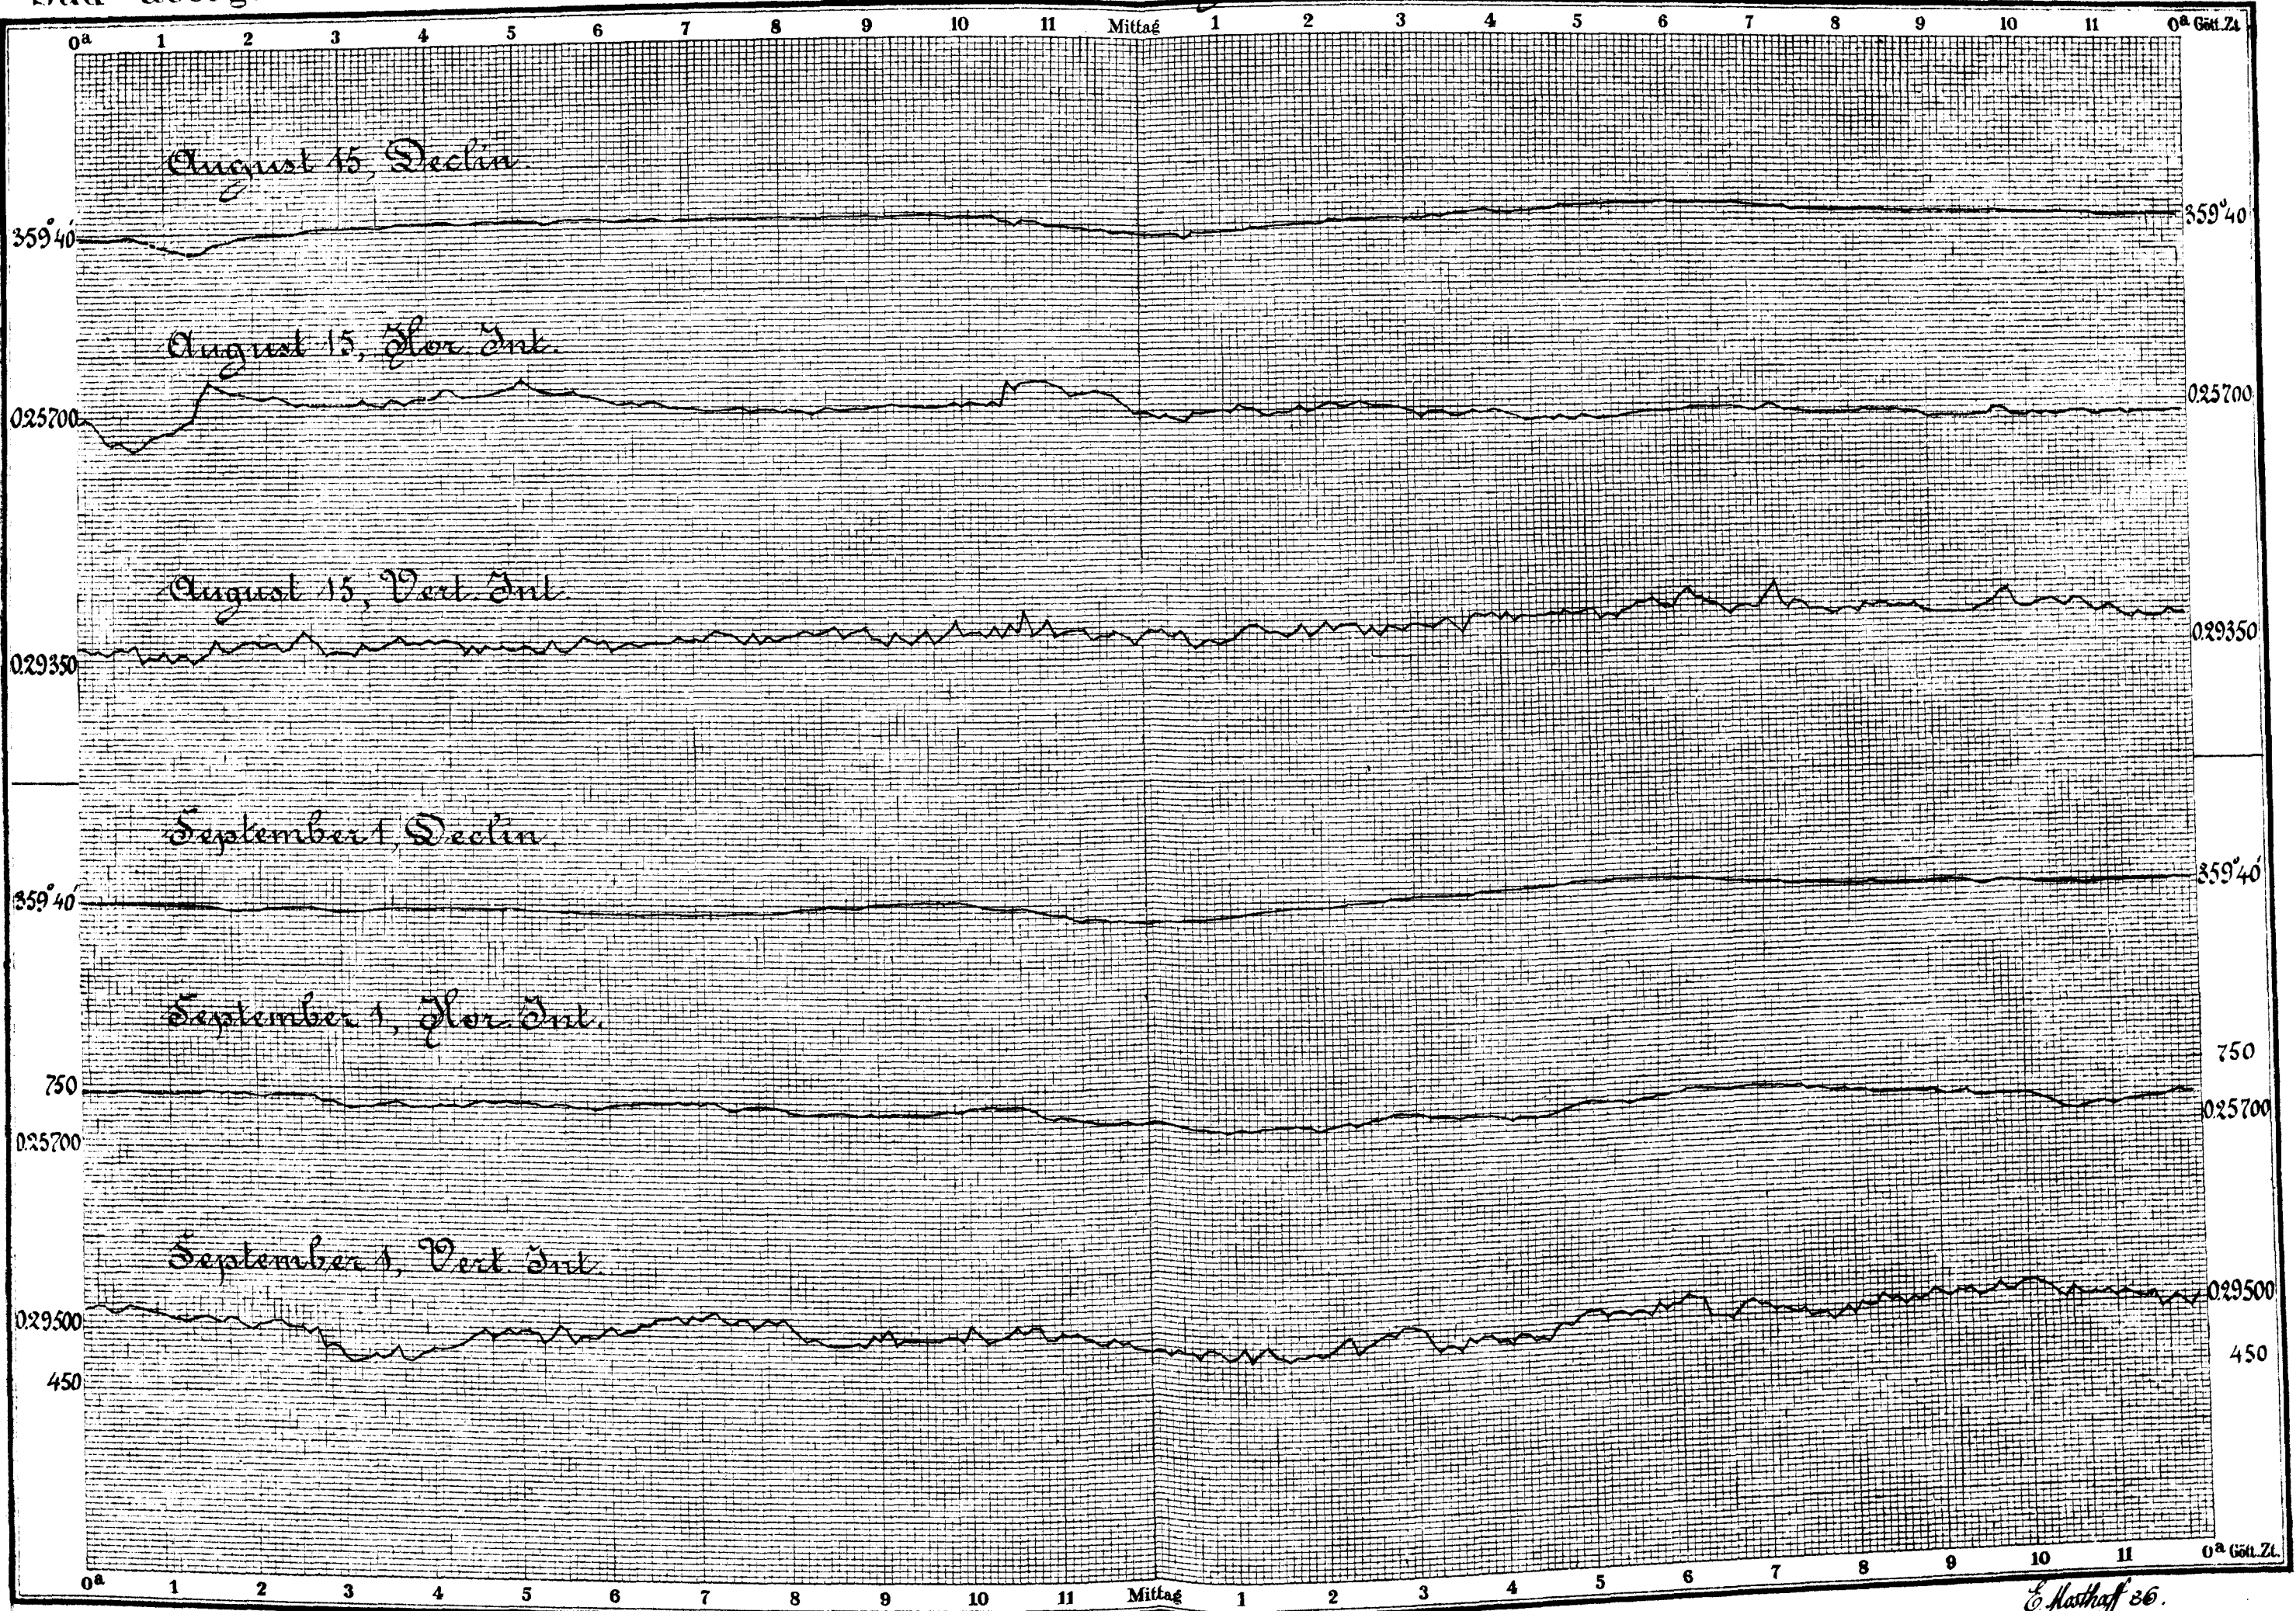 0ᵃ 1 2 3 4 5 6 7 8 9 10 11 Mittag 1 2 3 4 5 6 7 8 9 10 11 0ᵃ Gött. Zt.
August 15, Declin.
359° 40' 359° 40'
August 15, Hor. Int.
0.25700 0.25700
August 15, Vert. Int.
0.29350 0.29350
September 1, Declin.
359° 40' 359° 40'
September 1, Hor. Int.
750 750
0.25700 0.25700
September 1, Vert. Int.
0.29500 0.29500
450 450
0ᵃ 1 2 3 4 5 6 7 8 9 10 11 Mittag 1 2 3 4 5 6 7 8 9 10 11 0ᵃ Gött. Zt.
E. Mosthaff 86.